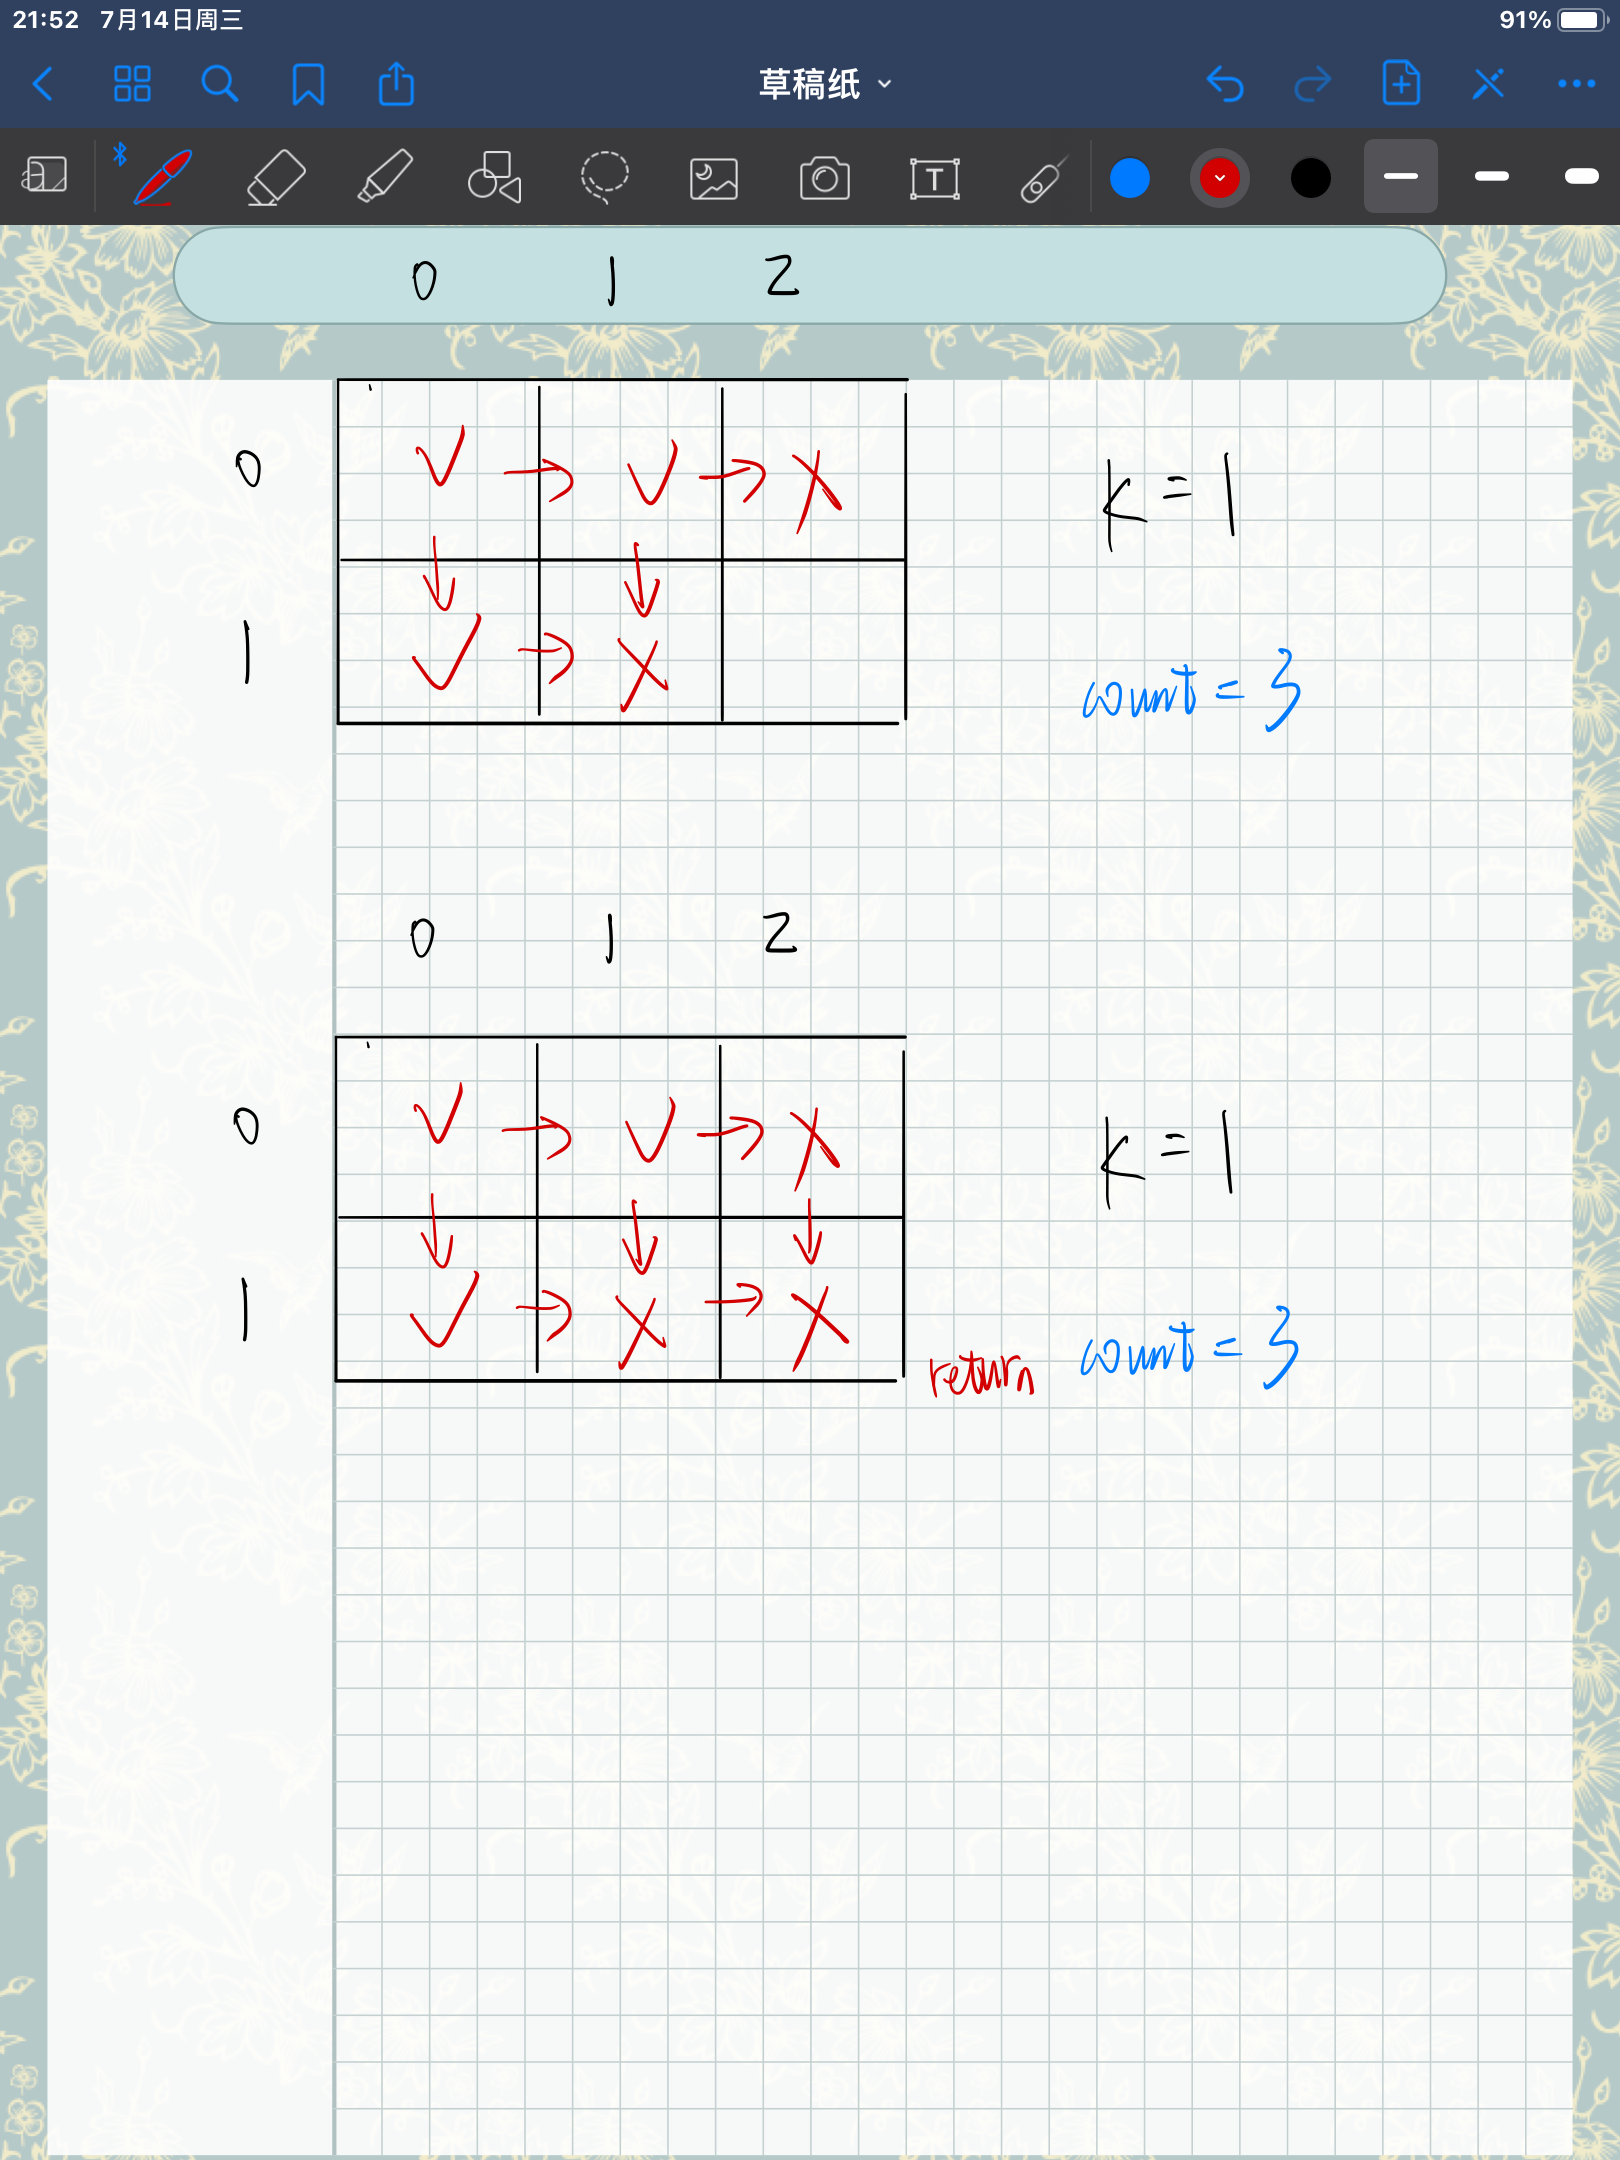 21:52 7月14日周三 91%
草稿纸
T
0 1 2
0 √ → √ → X k = 1
↓ ↓
1 √ → X count = 3
0 1 2
0 √ → √ → X k = 1
↓ ↓ ↓
1 √ → X → X return count = 3